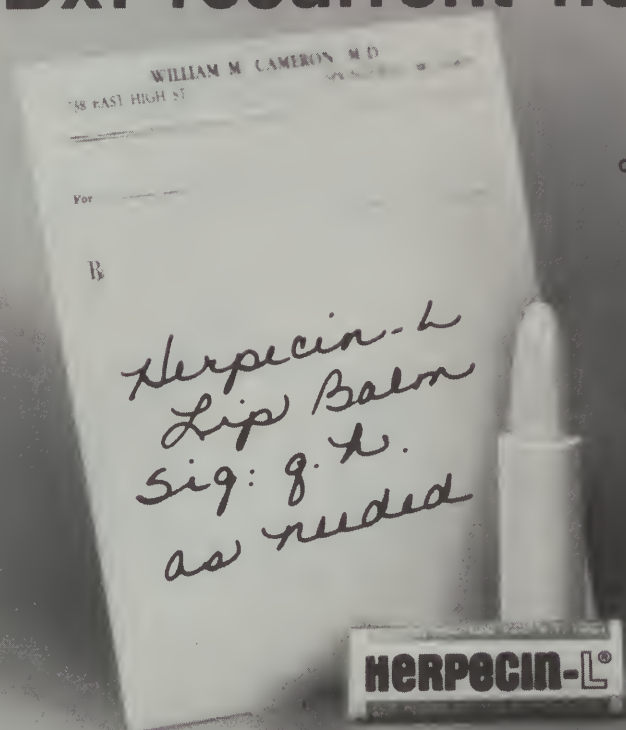 Dx: recurrent he
WILLIAM M. CAMERON, M.D.
EAST HIGH ST
For
℞
Herpecin-L
Lip Balm
Sig: q.h.
as needed
HERPECIN-L®